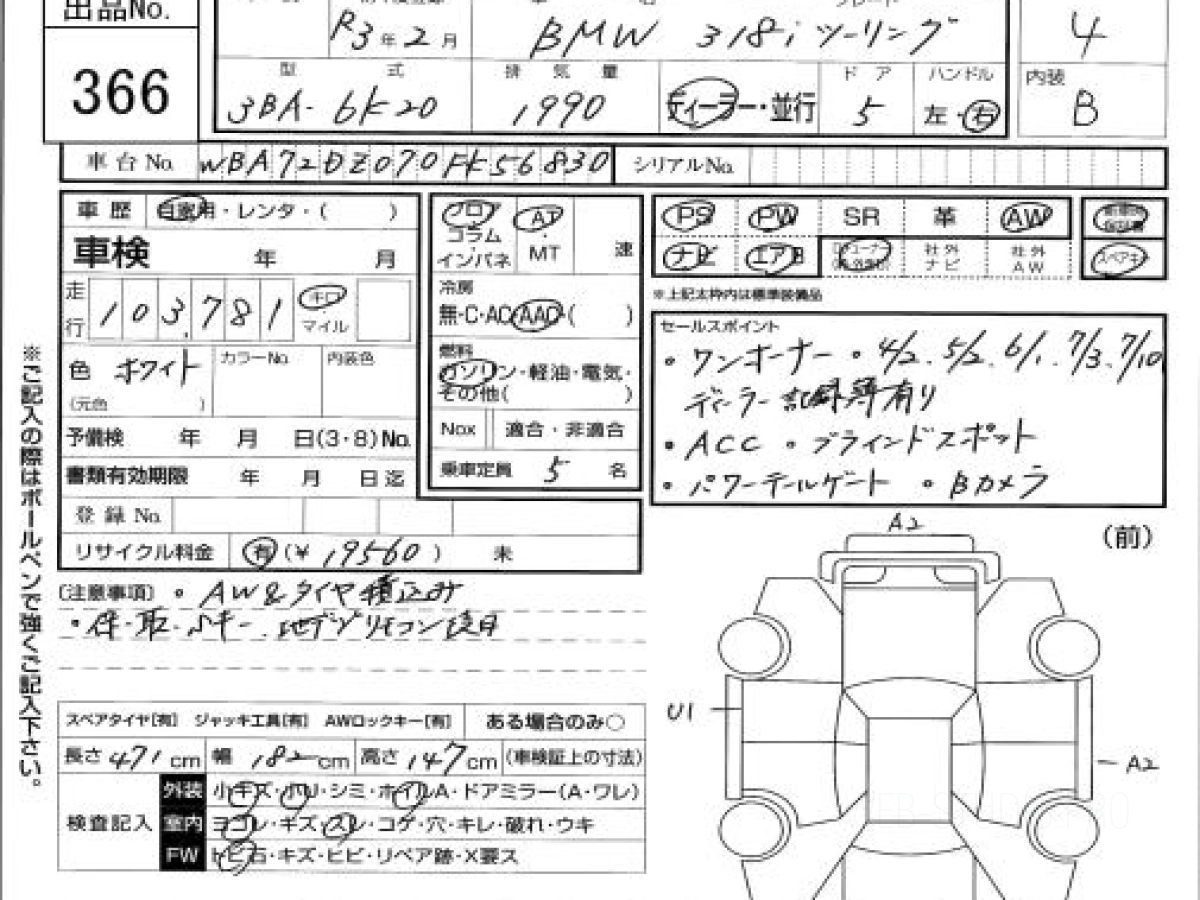 出品No. 366
R3年2月 BMW 318i ツーリング 4
型 式 排 気 量 ド ア ハンドル 内装
3BA-6K20 1990 ディーラー・並行 5 左・右 B
車台No. WBA72DZ070FK56830 シリアルNo.
車 歴 自家用・レンタ・( ) フロア AT PS PW SR 革 AW
コラム MT 速
インパネ
車検 年 月 ナビ エアB 社外ナビ 社外AW スペアキー
※上記太枠内は標準装備品
走行 103,781 キロ マイル
冷房
無・C・AC・AAC・( )
セールスポイント
・ワンオーナー ・4/2、5/2、6/1、7/3、7/10
ディーラー記録簿有り
・ACC ・ブラインドスポット
・パワーテールゲート ・Bカメラ
色 ホワイト カラーNo. 内装色
(元色 )
燃料
ガソリン・軽油・電気・
その他( )
予備検 年 月 日(3・8)No.
Nox 適合・非適合
書類有効期限 年 月 日迄
乗車定員 5 名
登 録 No.
リサイクル料金 有 (¥ 19560 ) 未
(注意事項) ・AW&タイヤ積込み
・保・取・Sキー、地デジリモコン後日
※ご記入の際はボールペンで強くご記入下さい。
スペアタイヤ[有] ジャッキ工具[有] AWロックキー[有] ある場合のみ○
長さ 471 cm 幅 182 cm 高さ 147 cm (車検証上の寸法)
検査記入
外装 小キズ・小U・シミ・ホイルA・ドアミラー(A・ワレ)
室内 ヨゴレ・キズ・スレ・コゲ・穴・キレ・破れ・ウキ
FW トビ石・キズ・ヒビ・リペア跡・X要ス
A2
(前)
U1
A2